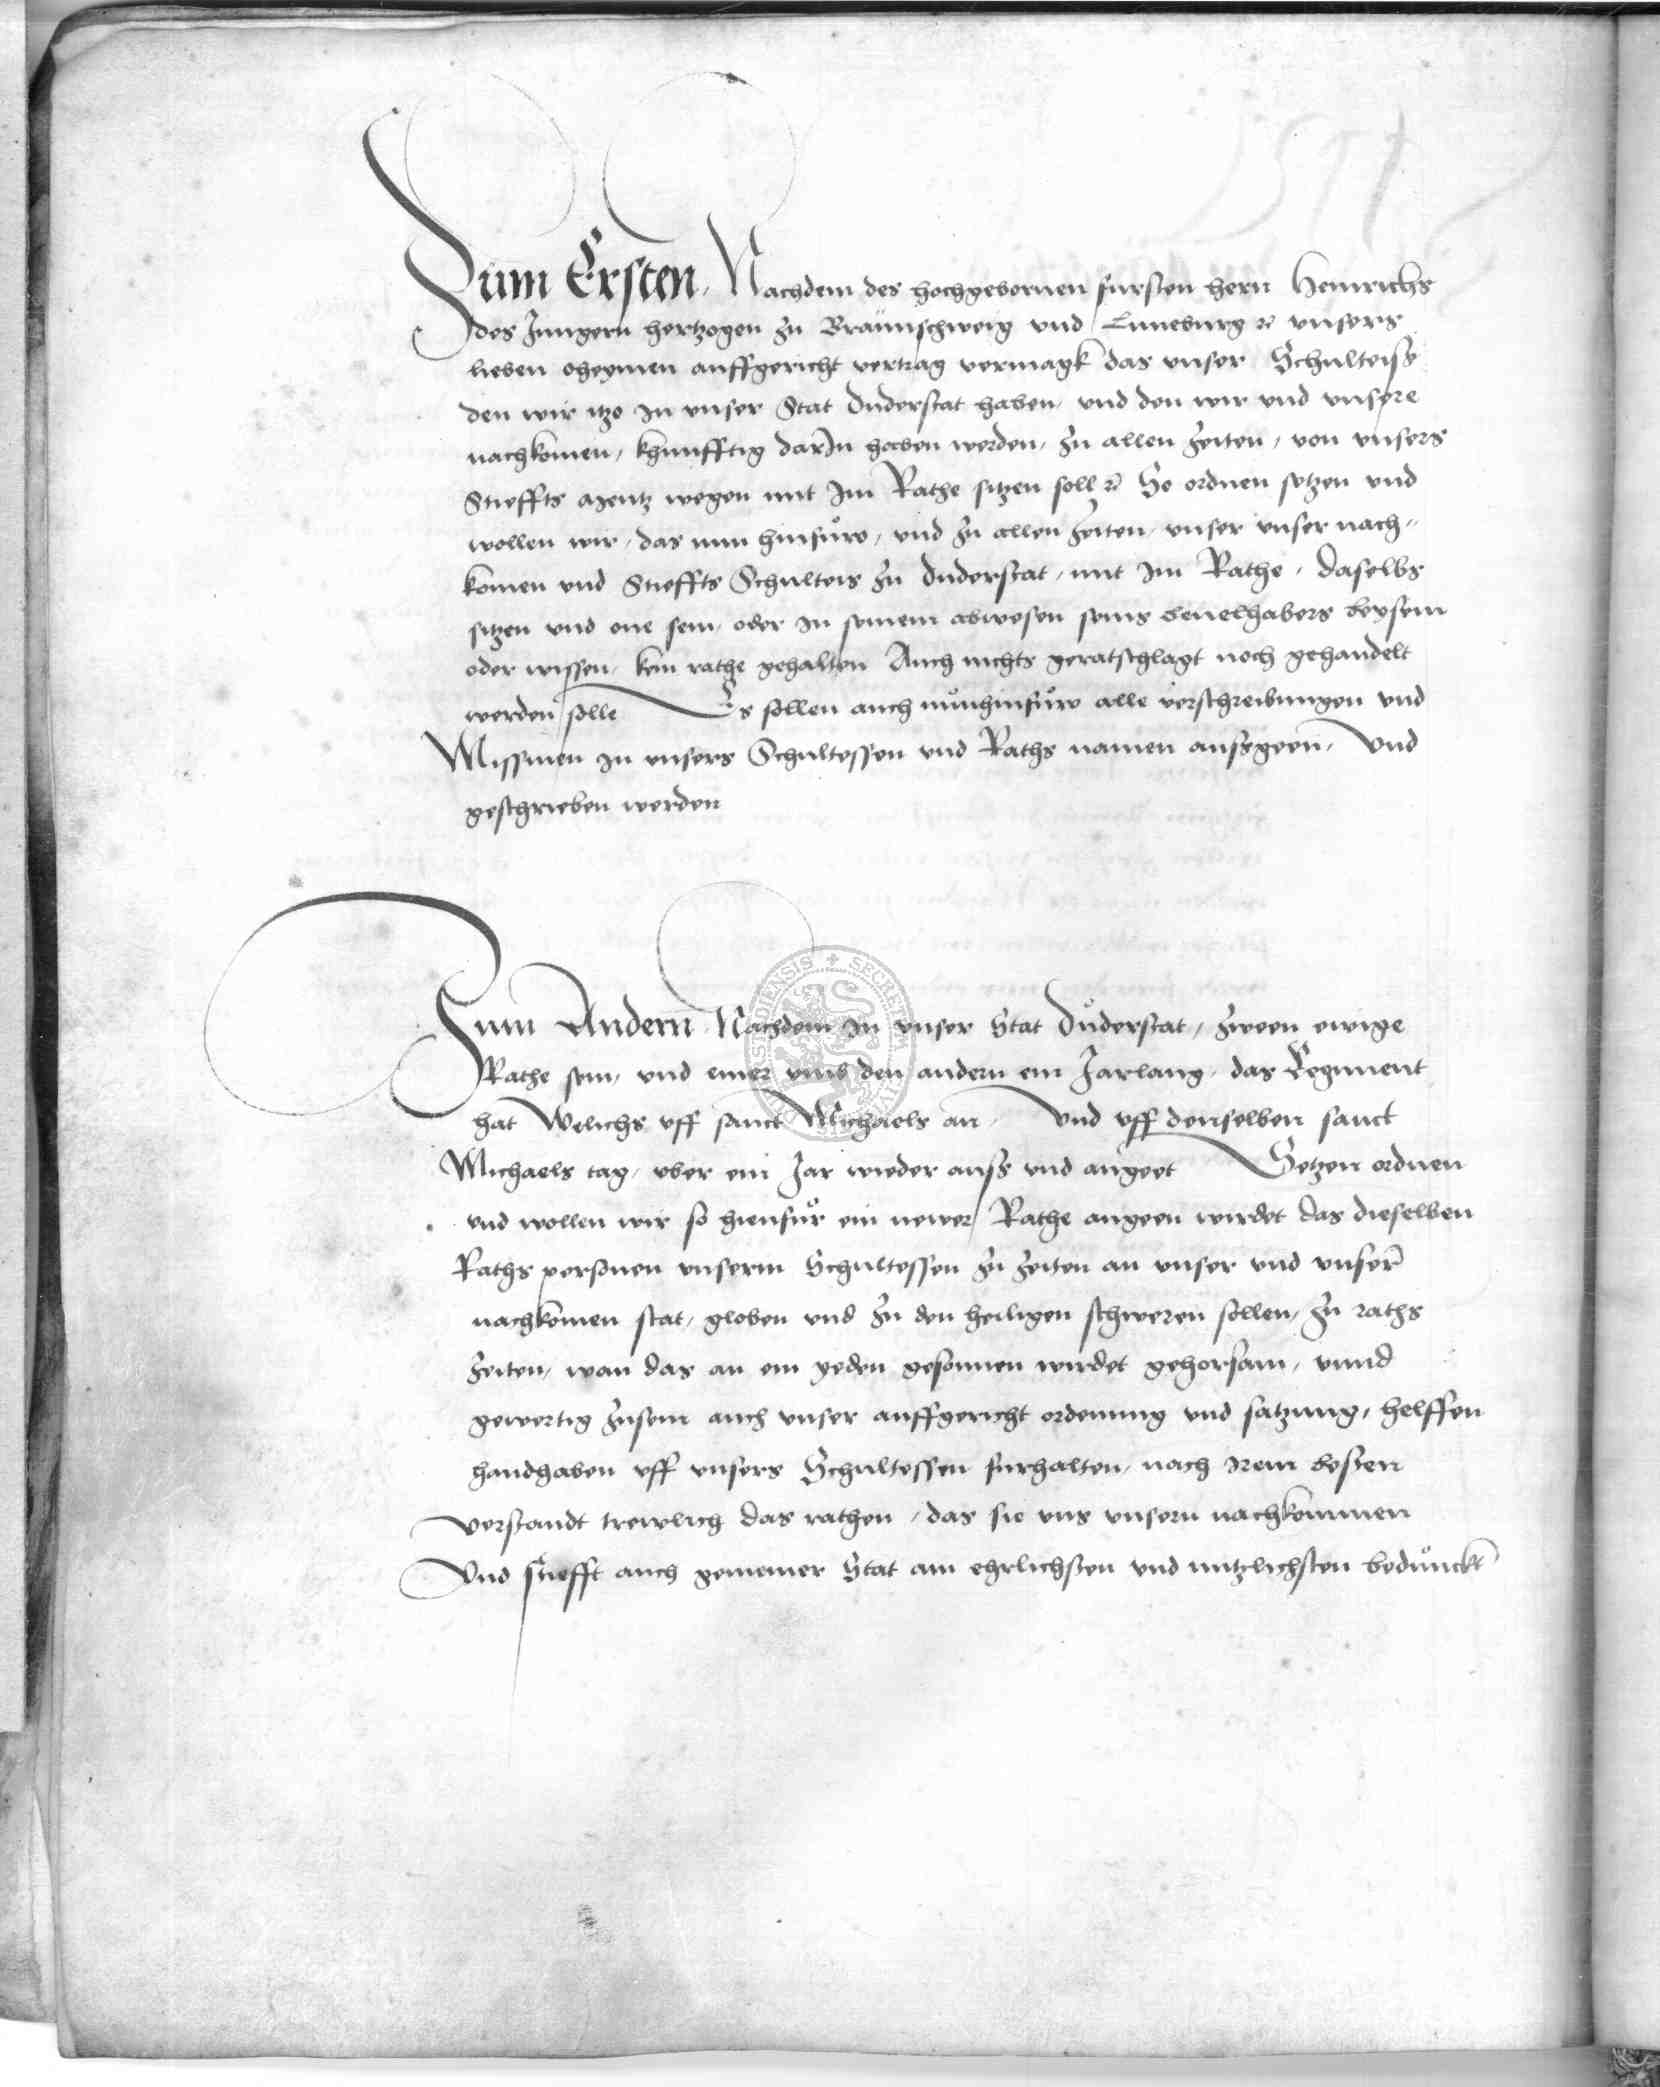 Zum Ersten, Nachdem des hochgebornen fursten hern Heinrichs
des Jungern hertzogen zu Braunschweig vnd Luneburg ꝛc vnsers
lieben oheymen auffgericht vertrag vermagk das vnser Schulteiss
den wir itzo in vnser Stat Duderstat haben, vnd den wir vnd vnsere
nachkomen, khunfftig darIn haben werden, zu allen zeiten, von vnsers
Stieffts Mentz wegen mit Im Rathe sitzen soll ꝛc So ordnen setzen vnd
wollen wir, das nun hinfuro, vnd zu allen zeiten, vnser vnser nach,,
komen vnd Stieffts Schulteis zu Duderstat, mit Im Rathe, daselbs
sitzen vnd one sein, oder in seinem abwesen seins beuelhabers beysein
oder wissen, kein rathe gehalten Auch nichts geratschlagt noch gehandelt
werden solle Es sollen auch nunhinfuro alle verschreibungen vnd
Missiuen in vnsers Schultessen vnd Raths namen aussgeen, Vnd
geschrieben werden
Zum Andern Nachdem in vnser Stat Duderstat, zween ewige
Rathe sein, vnd einer vmb den andern ein Jarlang, das Regiment
hat Welichs vff sanct Michaels an, Vnd vff denselben sanct
Michaels tag, vber ein Jar wieder auss vnd angeet Setzen ordnen
vnd wollen wir so hienfur ein newer Rathe angeen wirdet das dieselben
Raths personen vnserm Schultessen zu zeiten an vnser vnd vnser
nachkomen stat, globen vnd zu den heiligen schweren sollen, zu raths
zeiten, wan das an ein yeden gesonnen wirdet gehorsam, vnnd
gewertig zusein auch vnser auffgericht ordenung vnd satzung, helffen
handhaben vff vnsers Schultessen furhalten, nach irem besten
verstandt trewlich das rathen, das sie vns vnsern nachkommen
Vnd stiefft auch gemeiner Stat am ehrlichsten vnd nutzlichsten bedunckt